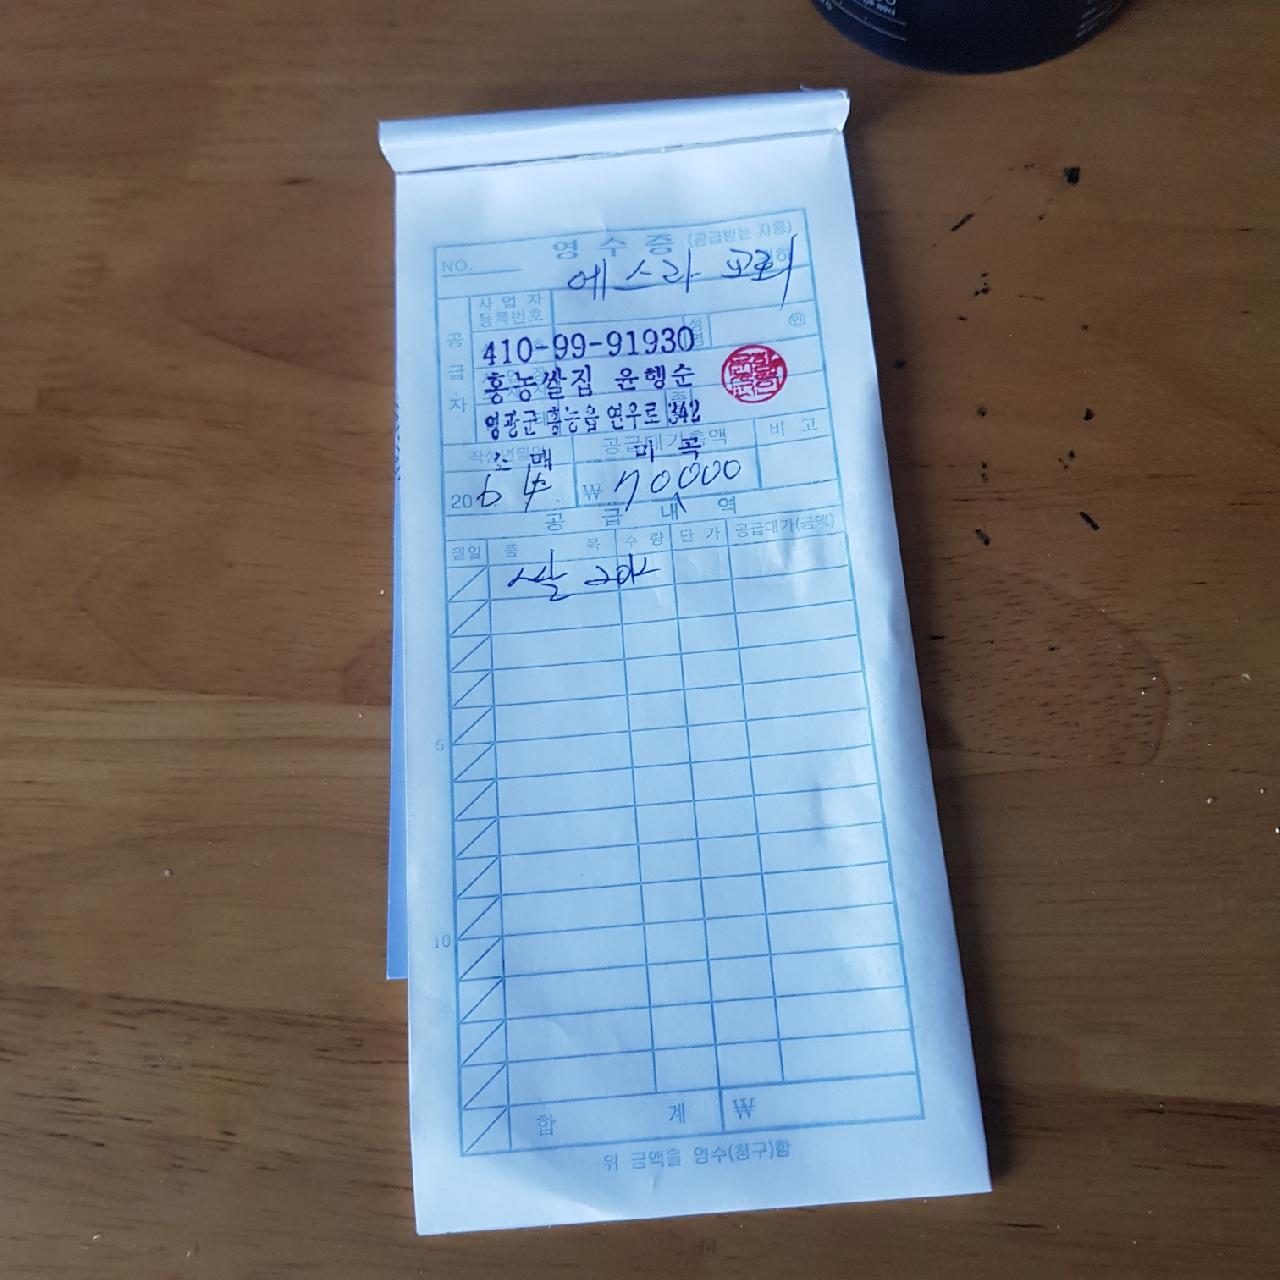 영 수 증 (공급받는 자용)
NO.
에스라 교회 귀하
공 급 자
사 업 자
등록번호
성명
인
410-99-91930
홍농쌀집 윤행순
영광군 홍농읍 연우로 342
작성년월일 공급대가총액 비 고
소 매 미 곡
20 ₩ 70000
공 급 내 역
월일 품 목 수 량 단 가 공급대가(금액)
쌀
5
10
합 계 ₩
위 금액을 영수(청구)함